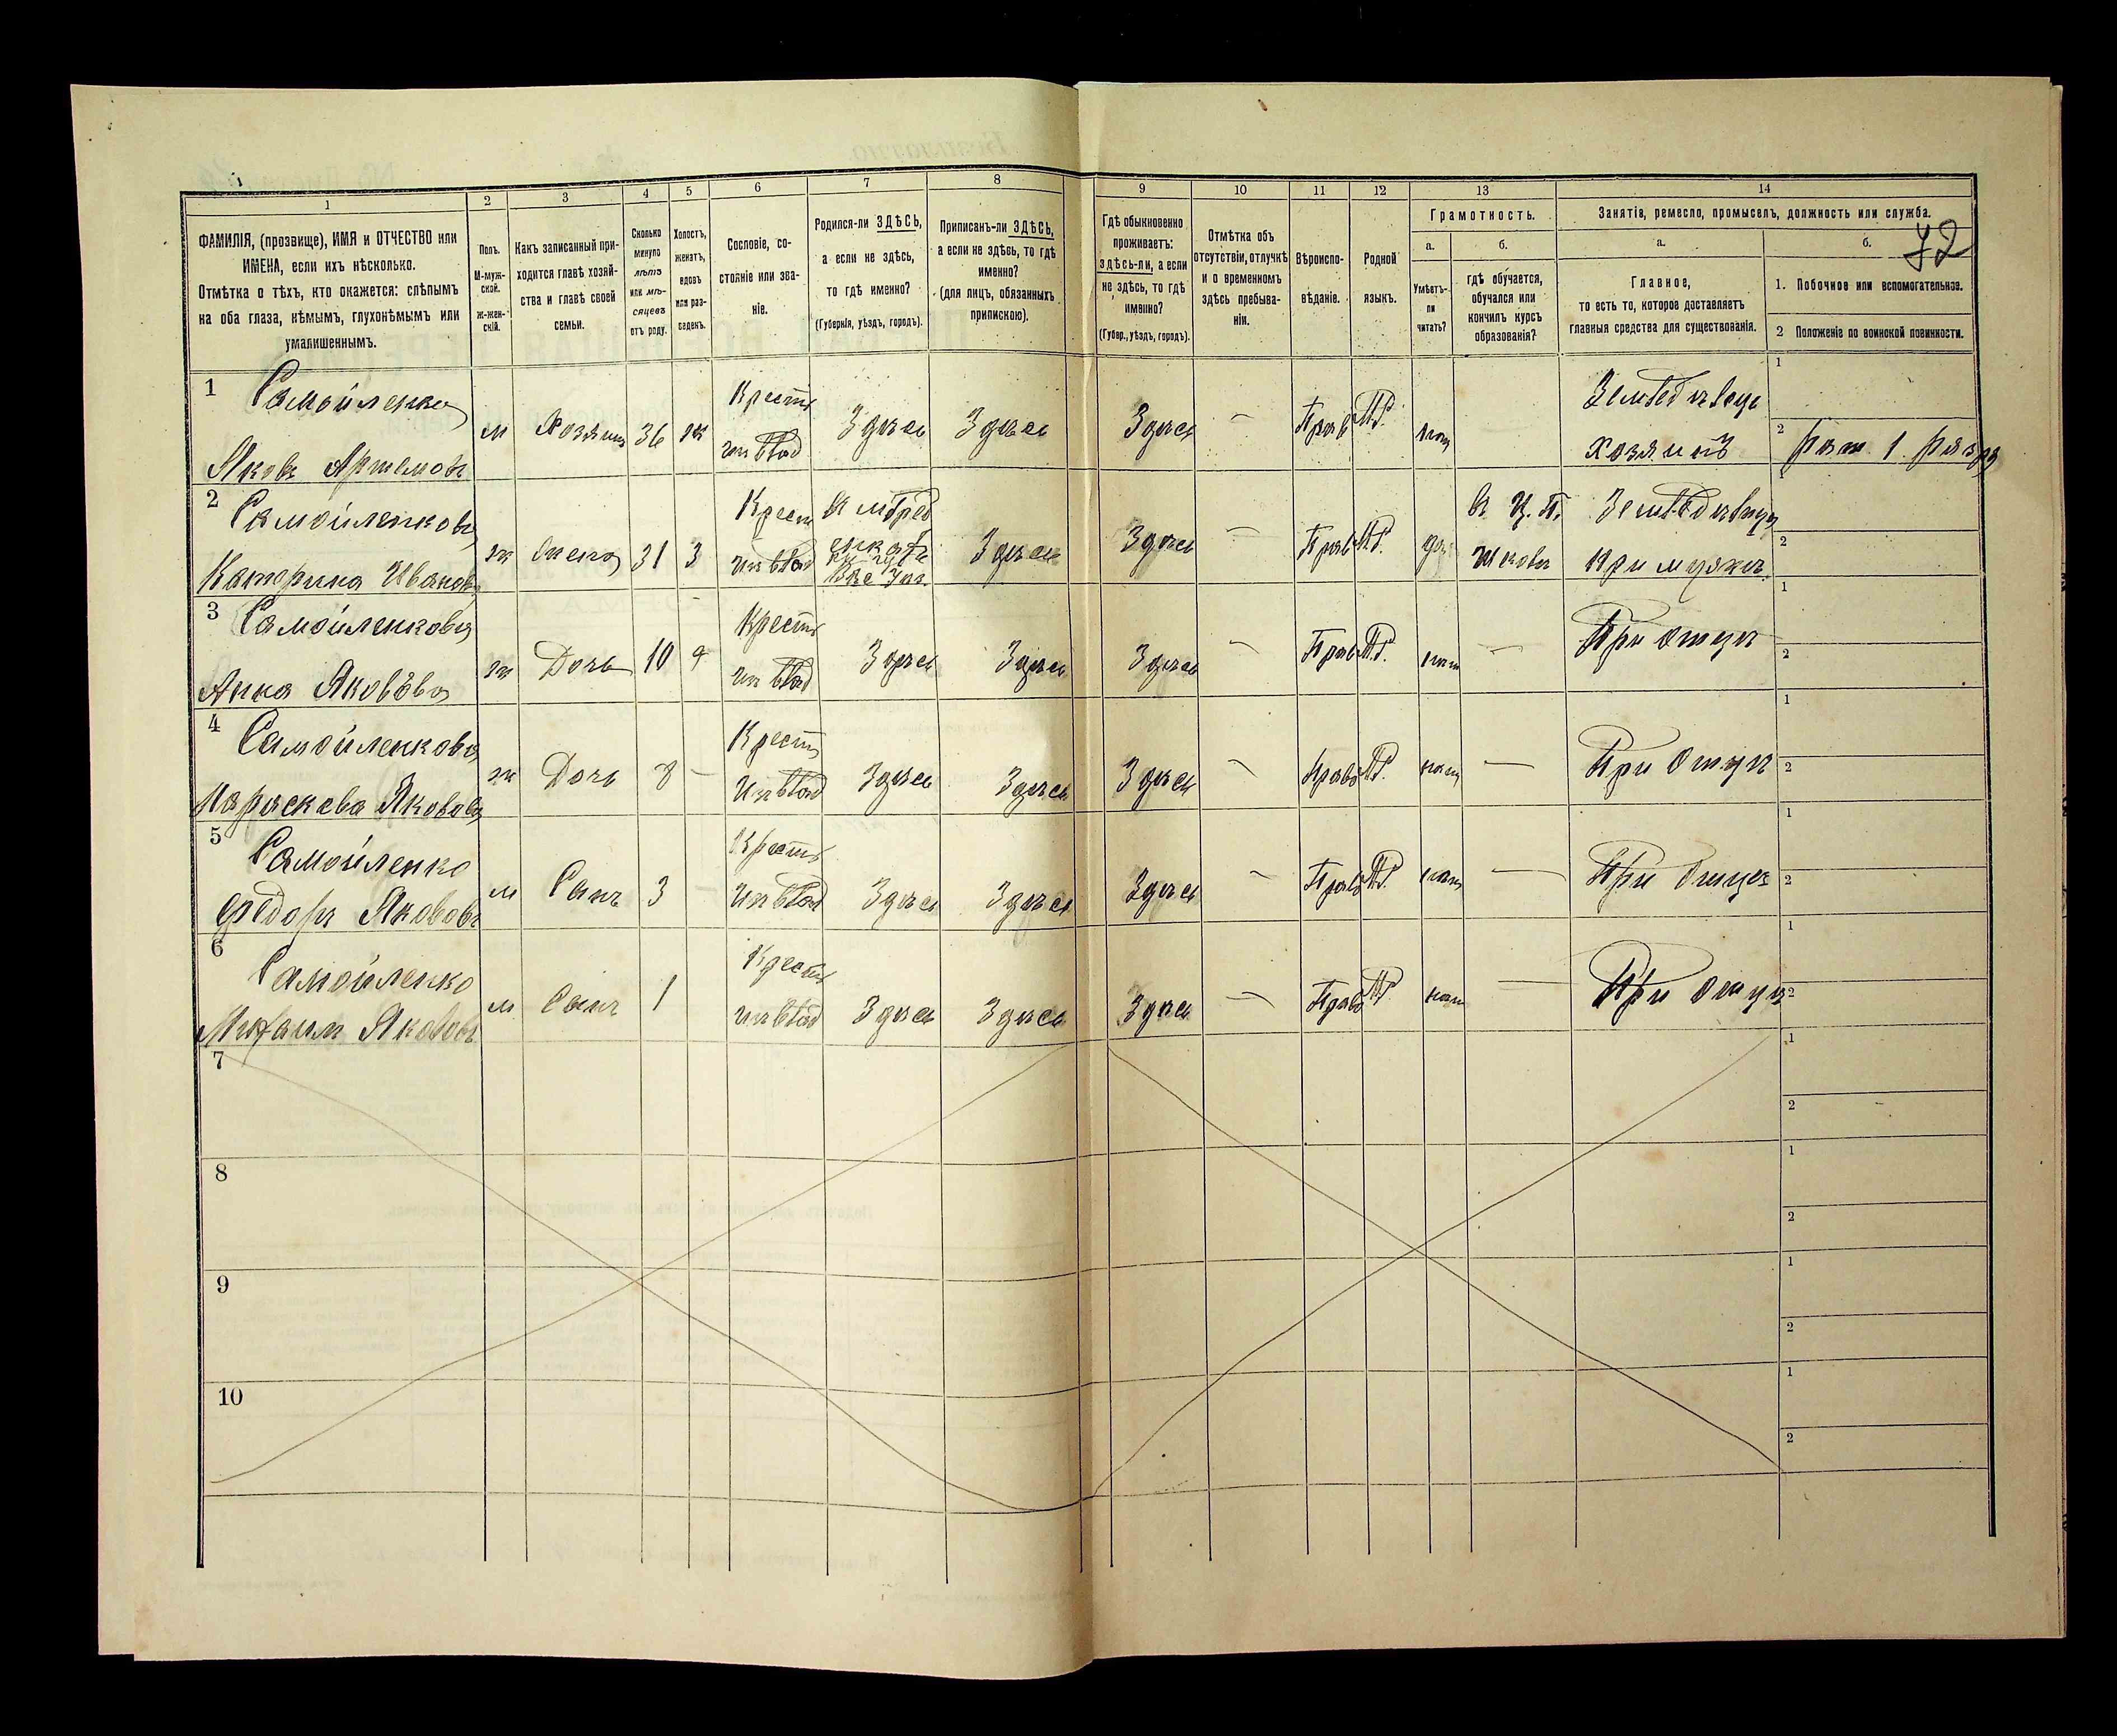 72
1 2 3 4 5 6 7 8 9 10 11 12 13 14
ФАМИЛІЯ, (прозвище), ИМЯ и ОТЧЕСТВО или
ИМЕНА, если ихъ нѣсколько.
Отмѣтка о тѣхъ, кто окажется: слѣпымъ
на оба глаза, нѣмымъ, глухонѣмымъ или
умалишеннымъ.
Полъ.
М-муж-
ской.
Ж-жен-
скій.
Какъ записанный при-
ходится главѣ хозяй-
ства и главѣ своей
семьи.
Сколько
минуло
лѣтъ
или мѣ-
сяцевъ
отъ роду.
Холостъ,
женатъ,
вдовъ
или раз-
веденъ.
Сословіе, со-
стояніе или зва-
ніе.
Родился-ли ЗДѢСЬ,
а если не здѣсь,
то гдѣ именно?
(Губернія, уѣздъ, городъ).
Приписанъ-ли ЗДѢСЬ,
а если не здѣсь, то гдѣ
именно?
(для лицъ, обязанныхъ
припискою).
Гдѣ обыкновенно
проживаетъ:
здѣсь-ли, а если
не здѣсь, то гдѣ
именно?
(Губер., уѣздъ, городъ).
Отмѣтка объ
отсутствіи, отлучкѣ
и о временномъ
здѣсь пребыва-
ніи.
Вѣроиспо-
вѣданіе.
Родной
языкъ.
Грамотность.
а. б.
Умѣетъ-
ли
читать?
гдѣ обучается,
обучался или
кончилъ курсъ
образованія?
Занятія, ремесло, промыселъ, должность или служба.
а. б.
Главное,
то есть то, которое доставляетъ
главныя средства для существованія.
1. Побочное или вспомогательное.
2 Положеніе по воинской повинности.
1 Самойленко Крестя Земледѣлецъ 1
Яковъ Артемовъ м Хозяинъ 36 ж Здѣсь Здѣсь Здѣсь — Прав М.Р. нѣт хозяинъ 2 рат. 1 разр
2 Самойленкова Крест А. Ц. П. Земледѣлица 1
Катерина Иванов ж жена 31 з Здѣсь Здѣсь — Прав М.Р. да Школѣ При мужѣ 2
3 Самойленкова Крестя 1
Анна Яковлева ж Дочь 10 Здѣсь Здѣсь Здѣсь — Прав М.Р. нѣт — При отцѣ 2
4 Самойленкова Крест 1
Параскева Яковова ж Дочь 8 — Здѣсь Здѣсь Здѣсь — Право М.Р. нѣт — При отцѣ 2
5 Самойленко Крестя 1
Федоръ Якововъ м Сынъ 3 — Здѣсь Здѣсь Здѣсь — Прав М.Р. нѣт — При отцѣ 2
6 Самойленко Крестя 1
Михаилъ Якововъ м Сынъ 1 Здѣсь Здѣсь Здѣсь — Право М.Р. нѣт — При отцѣ 2
7 1
2
8 1
2
9 1
2
10 1
2